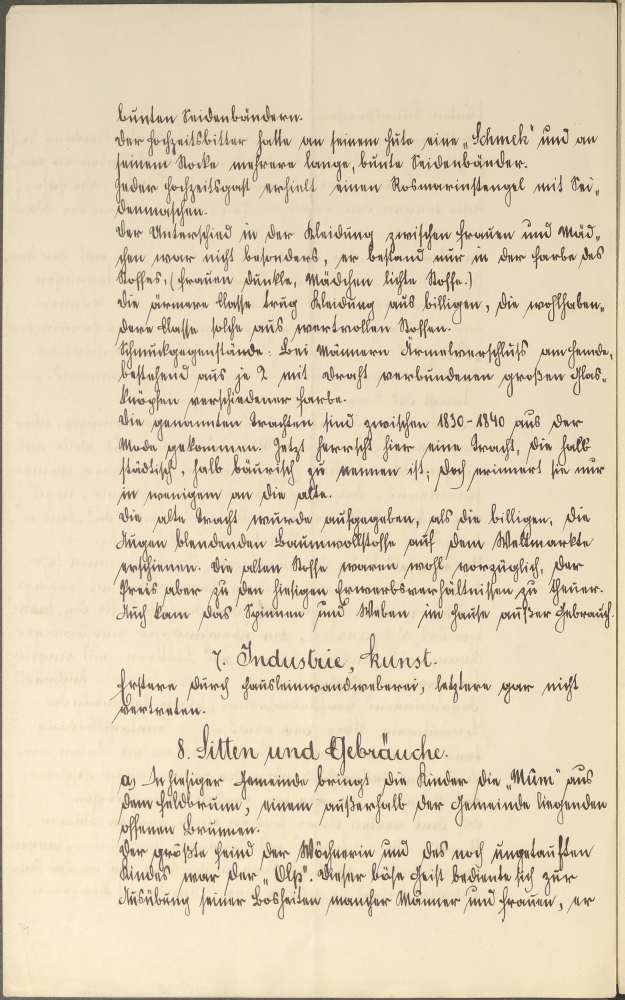 bunten Seidenbändern.
Der Hochzeitsbitter hatte an seinem Hute eine „Schmek" und an
seinem Rocke mehrere lange, bunte Seidenbänder.
Jeder Hochzeitsgast erhielt einen Rosmarinstengel mit Sei„
denmaschen.
Der Unterschied in der Kleidung zwischen Frauen und Mäd„
chen war nicht besonders, er bestand nur in der Farbe des
Stoffes, (Frauen dunkle, Mädchen lichte Stoffe.)
Die ärmere Classe trug Kleidung aus billigen, die wohlhaben„
dere Classe solche aus wertvollen Stoffen.
Schmuckgegenstände: Bei Männern Ärmelverschluss am Hemde,
bestehend aus je 2 mit Draht verbundenen großen Glas„
knöpfen verschiedener Farbe.
Die genannten Trachten sind zwischen 1830-1840 aus der
Mode gekommen. Jetzt herrscht hier eine Tracht, die halb
städtisch, halb bäurisch zu nennen ist; doch erinnert sie nur
in wenigem an die alte.
Die alte Tracht wurde aufgegeben, als die billigen, die
Augen blendenden Baumwollstoffe auf dem Weltmarkte
erschienen. Die alten Stoffe waren wohl vorzüglich, der
Preis aber zu den hiesigen Erwerbsverhältnissen zu theuer.
Auch kam das Spinnen und Weben im Hause außer Gebrauch.
7. Industrie, Kunst.
Erstere durch Hausleinwandweberei, letztere gar nicht
vertreten.
8. Sitten und Gebräuche.
a) In hiesiger Gemeinde bringt die Kinder die „Mům" aus
dem Feldbrunn, einem außerhalb der Gemeinde liegenden
offenen Brunnen.
Der größte Feind der Wöchnerin und des noch ungetauften
Kindes war der „Olp". Dieser böse Geist bediente sich zur
Ausübung seiner Bosheiten mancher Männer und Frauen, er